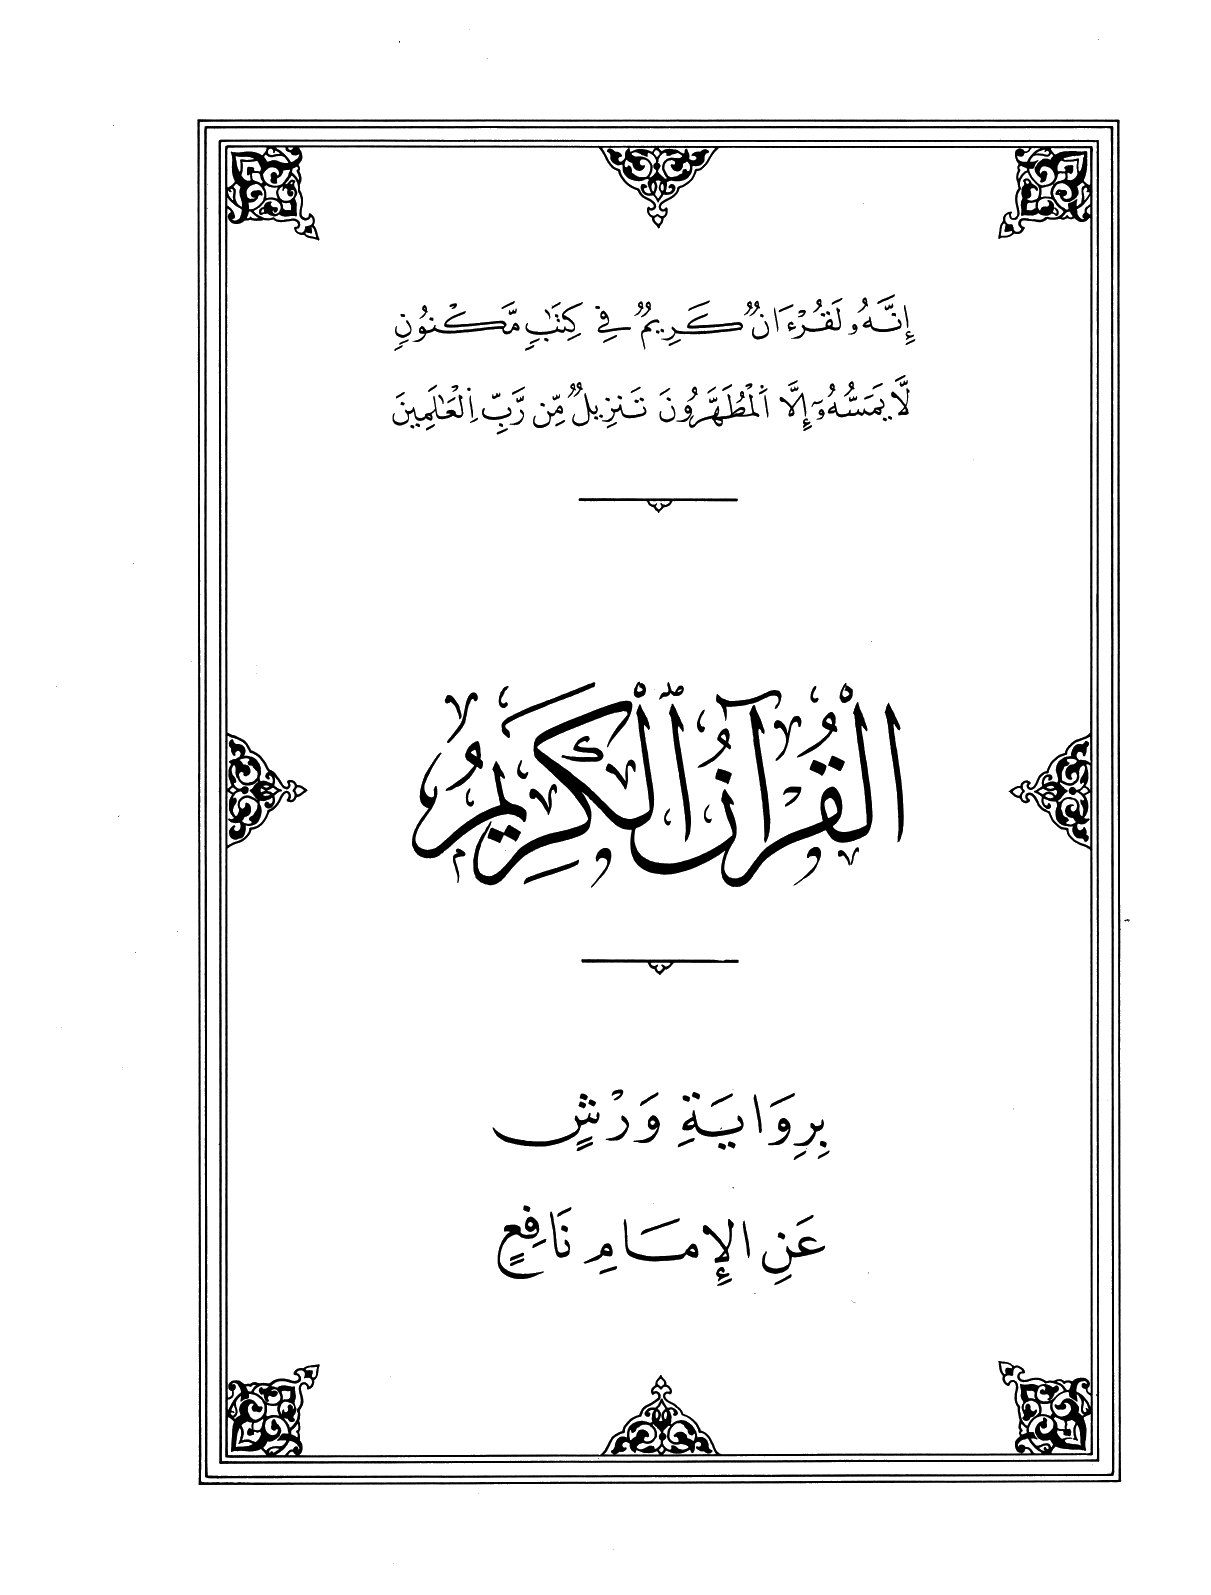 إِنَّهُۥ لَقُرْءَانٞ كَرِيمٞ فِے كِتَٰبٖ مَّكْنُونٖ
لَّا يَمَسُّهُۥٓ إِلَّا اَ۬لْمُطَهَّرُونَ تَنزِيلٞ مِّن رَّبِّ اِ۬لْعَٰلَمِينَ
الْقُرْآنُ ٱلْكَرِيمُ
بِرِوَايَةِ وَرْشٍ
عَنِ الإِمَامِ نَافِعٍ